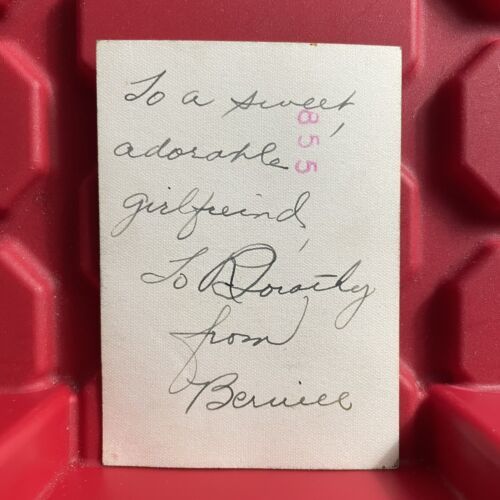 To a sweet,
adorable
girlfreind,
To Dorothy
from
Bernice
855